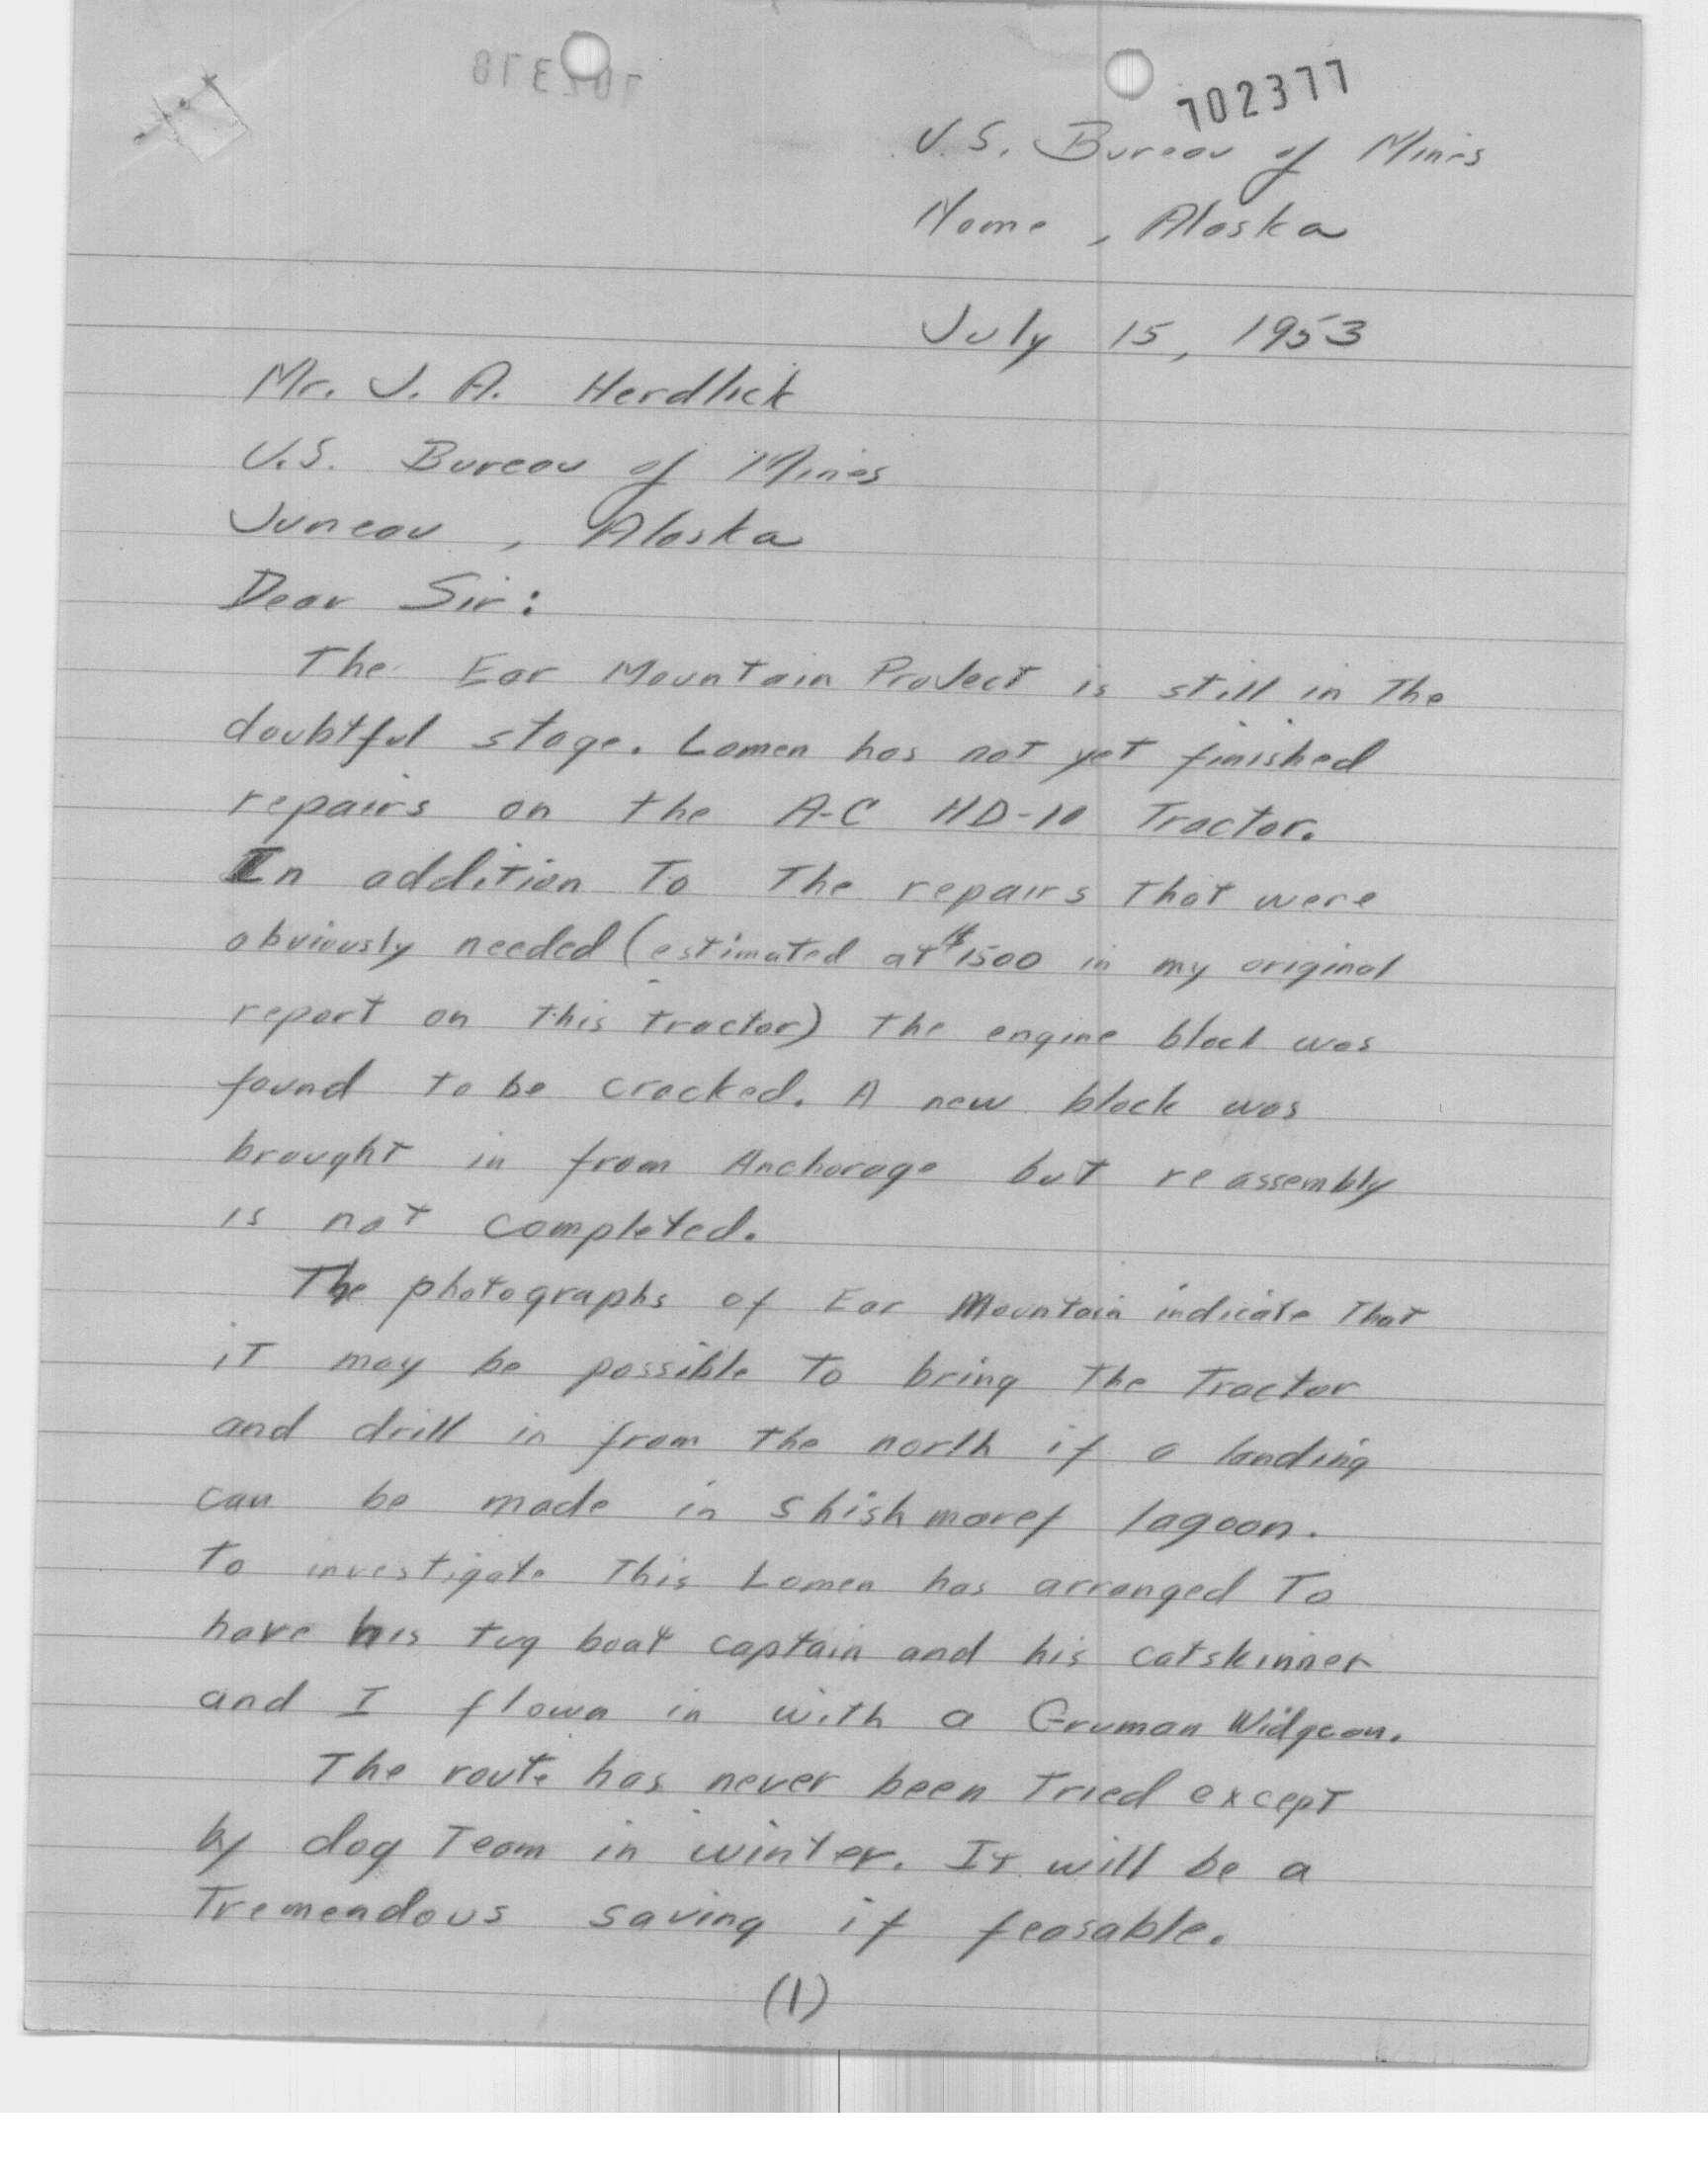 702378
702377
U.S. Bureau of Mines
Nome, Alaska
July 15, 1953
Mr. J. A. Herdlick
U.S. Bureau of Mines
Juneau, Alaska
Dear Sir:
The Ear Mountain Project is still in the
doubtful stage. Lomen has not yet finished
repairs on the A-C HD-10 Tractor.
In addition to the repairs that were
obviously needed (estimated at $1500 in my original
report on this tractor) the engine block was
found to be cracked. A new block was
brought in from Anchorage but reassembly
is not completed.
The photographs of Ear Mountain indicate that
it may be possible to bring the tractor
and drill in from the north if a landing
can be made in Shishmaref lagoon.
To investigate this Lomen has arranged to
have his tug boat captain and his catskinner
and I flown in with a Gruman Widgeon.
The route has never been tried except
by dog team in winter. It will be a
tremendous saving if feasable.
(1)